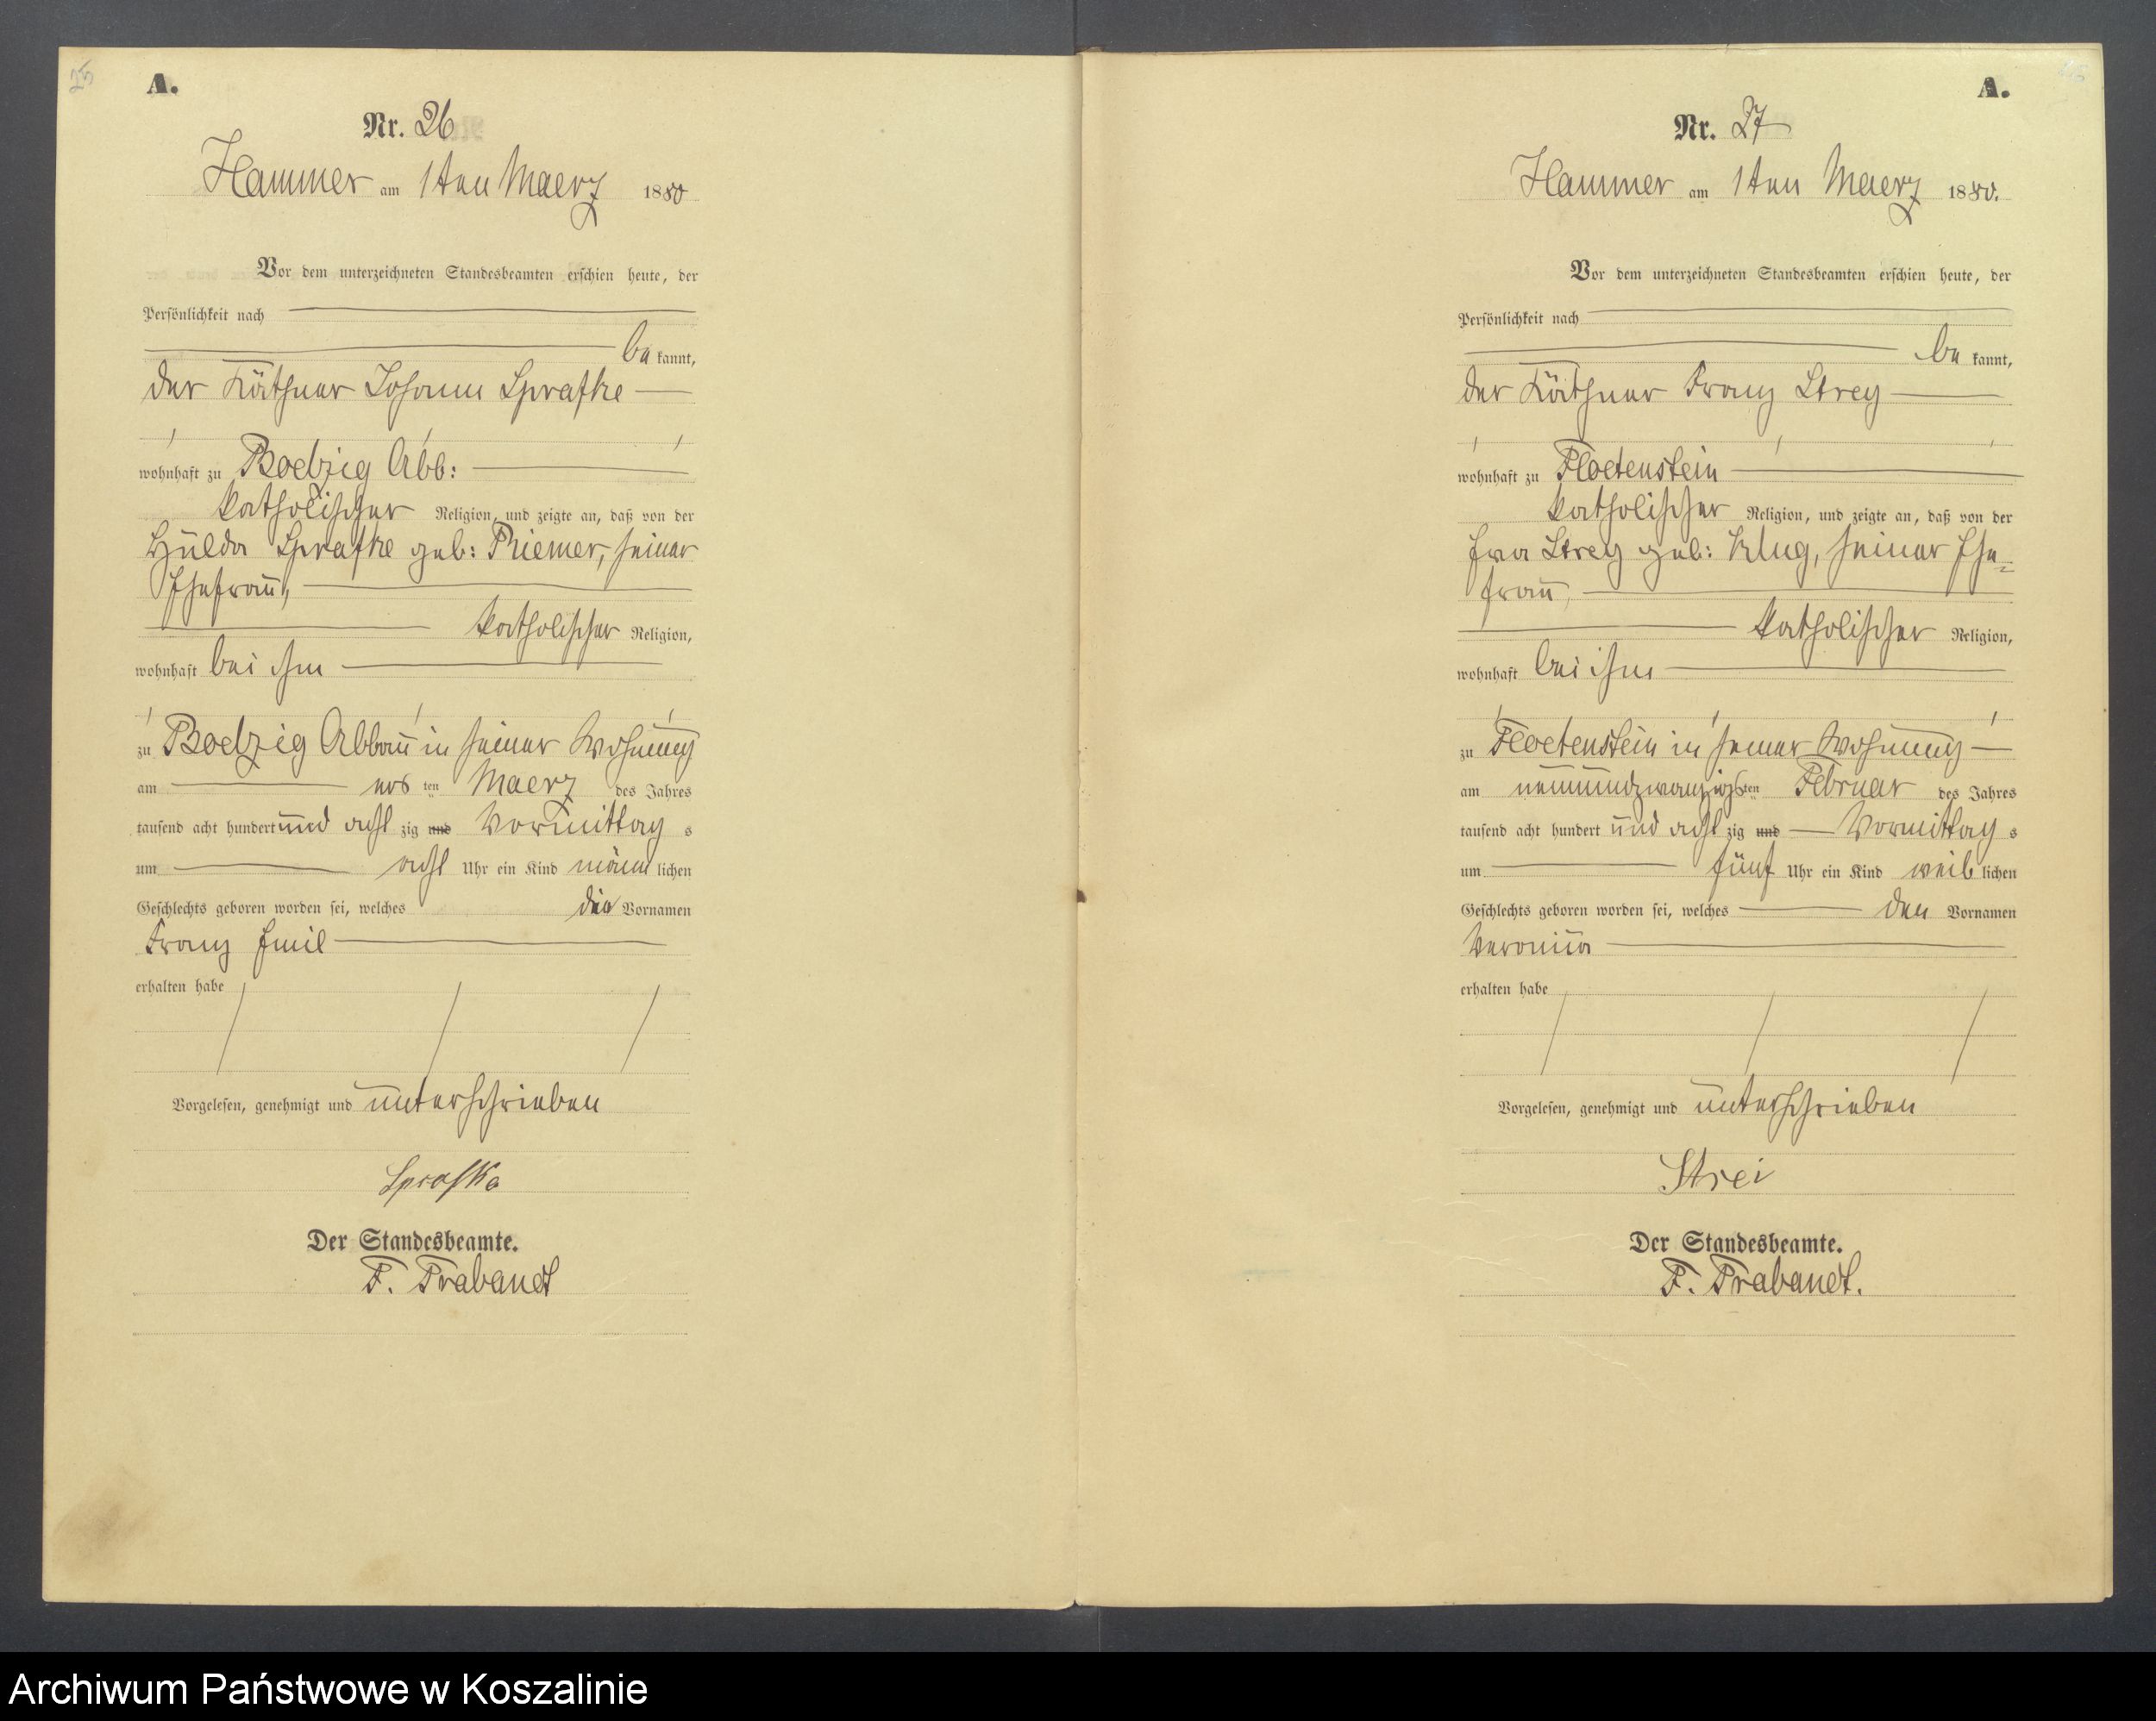 25
A.
Nr. 26
Hammer am 1ten Maerz 1880
Vor dem unterzeichneten Standesbeamten erschien heute, der
Persönlichkeit nach
be kannt,
der Käthner Johann Sprafke
wohnhaft zu Boelzig Abb:
katholischer Religion, und zeigte an, daß von der
Hulda Sprafke geb: Riemer, seiner
Ehefrau,
katholischer Religion,
wohnhaft bei ihm
zu Boelzig Abbau in seiner Wohnung
am ers ten Maerz des Jahres
tausend acht hundert und acht zig und Vormittag s
um acht Uhr ein Kind männ lichen
Geschlechts geboren worden sei, welches die Vornamen
Franz Emil
erhalten habe
Vorgelesen, genehmigt und unterschrieben
Sprafke
Der Standesbeamte.
F. Trabandt
A.
Nr. 27
Hammer am 1ten Maerz 1880.
Vor dem unterzeichneten Standesbeamten erschien heute, der
Persönlichkeit nach
be kannt,
der Käthner Franz Strey
wohnhaft zu Floetenstein
katholischer Religion, und zeigte an, daß von der
Eva Strey geb: Klug, seiner Ehe-
frau,
katholischer Religion,
wohnhaft bei ihm
zu Floetenstein in seiner Wohnung
am neunundzwanzigs ten Februar des Jahres
tausend acht hundert und acht zig und Vormittag s
um fünf Uhr ein Kind weib lichen
Geschlechts geboren worden sei, welches den Vornamen
erhalten habe
Vorgelesen, genehmigt und unterschrieben
Strei
Der Standesbeamte.
F. Trabandt.
Archiwum Państwowe w Koszalinie